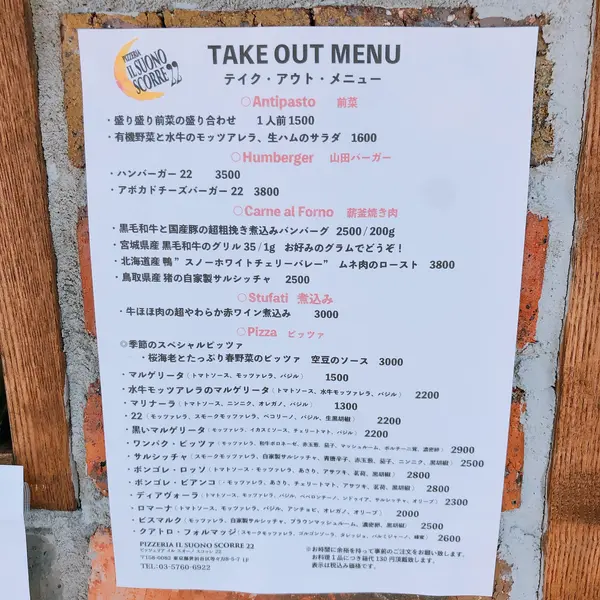 PIZZERIA
IL SUONO
SCORRE 22
TAKE OUT MENU
テイク・アウト・メニュー
○Antipasto 前菜
・盛り盛り前菜の盛り合わせ 1人前1500
・有機野菜と水牛のモッツアレラ、生ハムのサラダ 1600
○Humberger 山田バーガー
・ハンバーガー22 3500
・アボカドチーズバーガー22 3800
○Carne al Forno 薪釜焼き肉
・黒毛和牛と国産豚の超粗挽き煮込みバンバーグ 2500/200g
・宮城県産 黒毛和牛のグリル 35/1g お好みのグラムでどうぞ！
・北海道産 鴨”スノーホワイトチェリーバレー” ムネ肉のロースト 3800
・鳥取県産 猪の自家製サルシッチャ 2500
○Stufati 煮込み
・牛ほほ肉の超やわらか赤ワイン煮込み 3000
○Pizza ピッツァ
◎季節のスペシャルピッツァ
・桜海老とたっぷり春野菜のピッツァ 空豆のソース 3000
・マルゲリータ（トマトソース、モッツァレラ、バジル） 1500
・水牛モッツアレラのマルゲリータ（トマトソース、水牛モッツァレラ、バジル） 2200
・マリナーラ（トマトソース、ニンニク、オレガノ、バジル） 1300
・22（モッツァレラ、スモークモッツァレラ、ペコリーノ、バジル、生黒胡椒） 2200
・黒いマルゲリータ（モッツァレラ、イカスミソース、チェリートマト、バジル） 2200
・ワンパク・ピッツァ（モッツァレラ、和牛ボロネーゼ、赤玉葱、茄子、マッシュルーム、ポルチーニ茸、濃密卵） 2900
・サルシッチャ（モッツァレラ、自家製サルシッチャ、青唐辛子、赤玉葱、茄子、ニンニク、黒胡椒） 2500
・ボンゴレ・ロッソ（トマトソース・モッツァレラ、あさり、アサツキ、茗荷、黒胡椒） 2800
・ボンゴレ・ビアンコ（モッツァレラ、あさり、チェリートマト、アサツキ、茗荷、黒胡椒） 2800
・ディアヴォーラ（トマトソース・モッツァレラ、バジル、ペペロンチーノ、ンドゥイヤ、サルシッチャ、オリーブ） 2300
・ロマーナ（トマトソース、モッツァレラ、バジル、アンチョビ、オレガノ、オリーブ） 2000
・ビスマルク（モッツァレラ、自家製サルシッチャ、ブラウンマッシュルーム、濃密卵、黒胡椒） 2500
・クアトロ・フォルマッジ（スモークモッツァレラ、ゴルゴンゾーラ、タレッジョ、パルミジャーノ、蜂蜜） 2600
PIZZERIA IL SUONO SCORRE 22
ピッツェリア イル スオーノ スコッレ 22
TEL:03-5760-6922
※お時間に余裕を持って事前のご注文をお願い致します。
お料理1品につき箱代130円頂戴致します。
表示は税込み価格です。